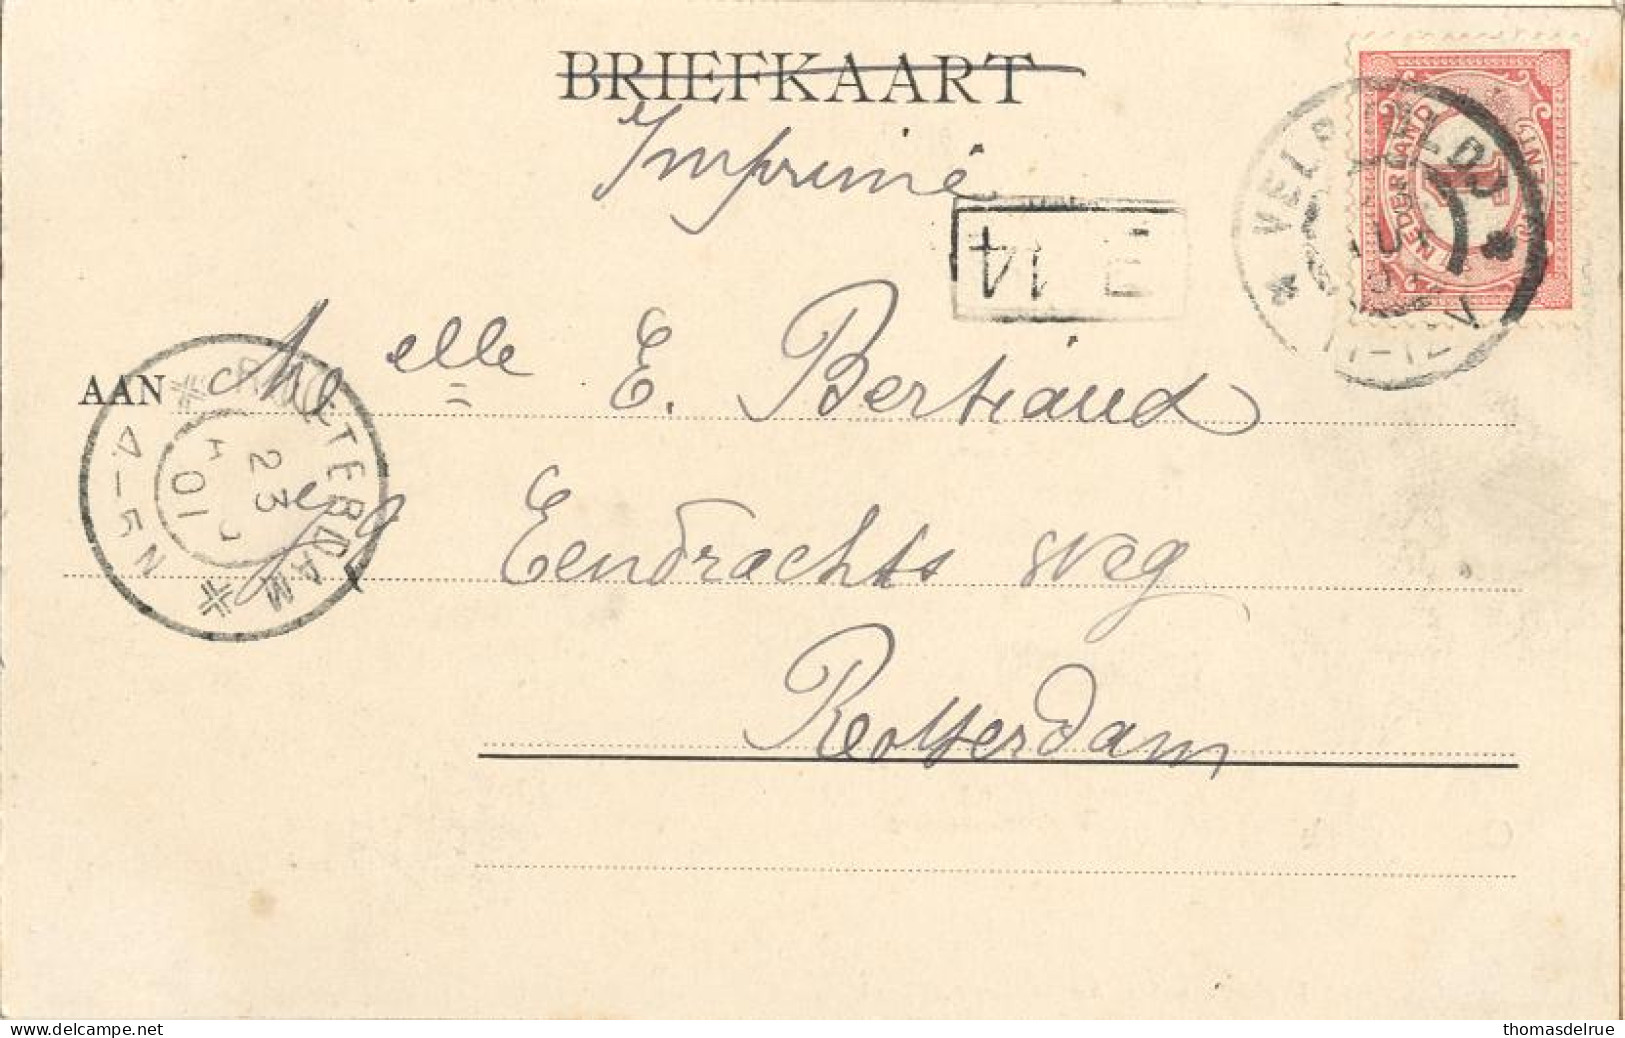 BRIEFKAART
Imprimé
14
AAN Melle E. Bertrand
Eendrachts weg
Rotterdam
ROTTERDAM
23
01
4-5N
VELP
11-12 V
NEDERLAND
thomasdelrue